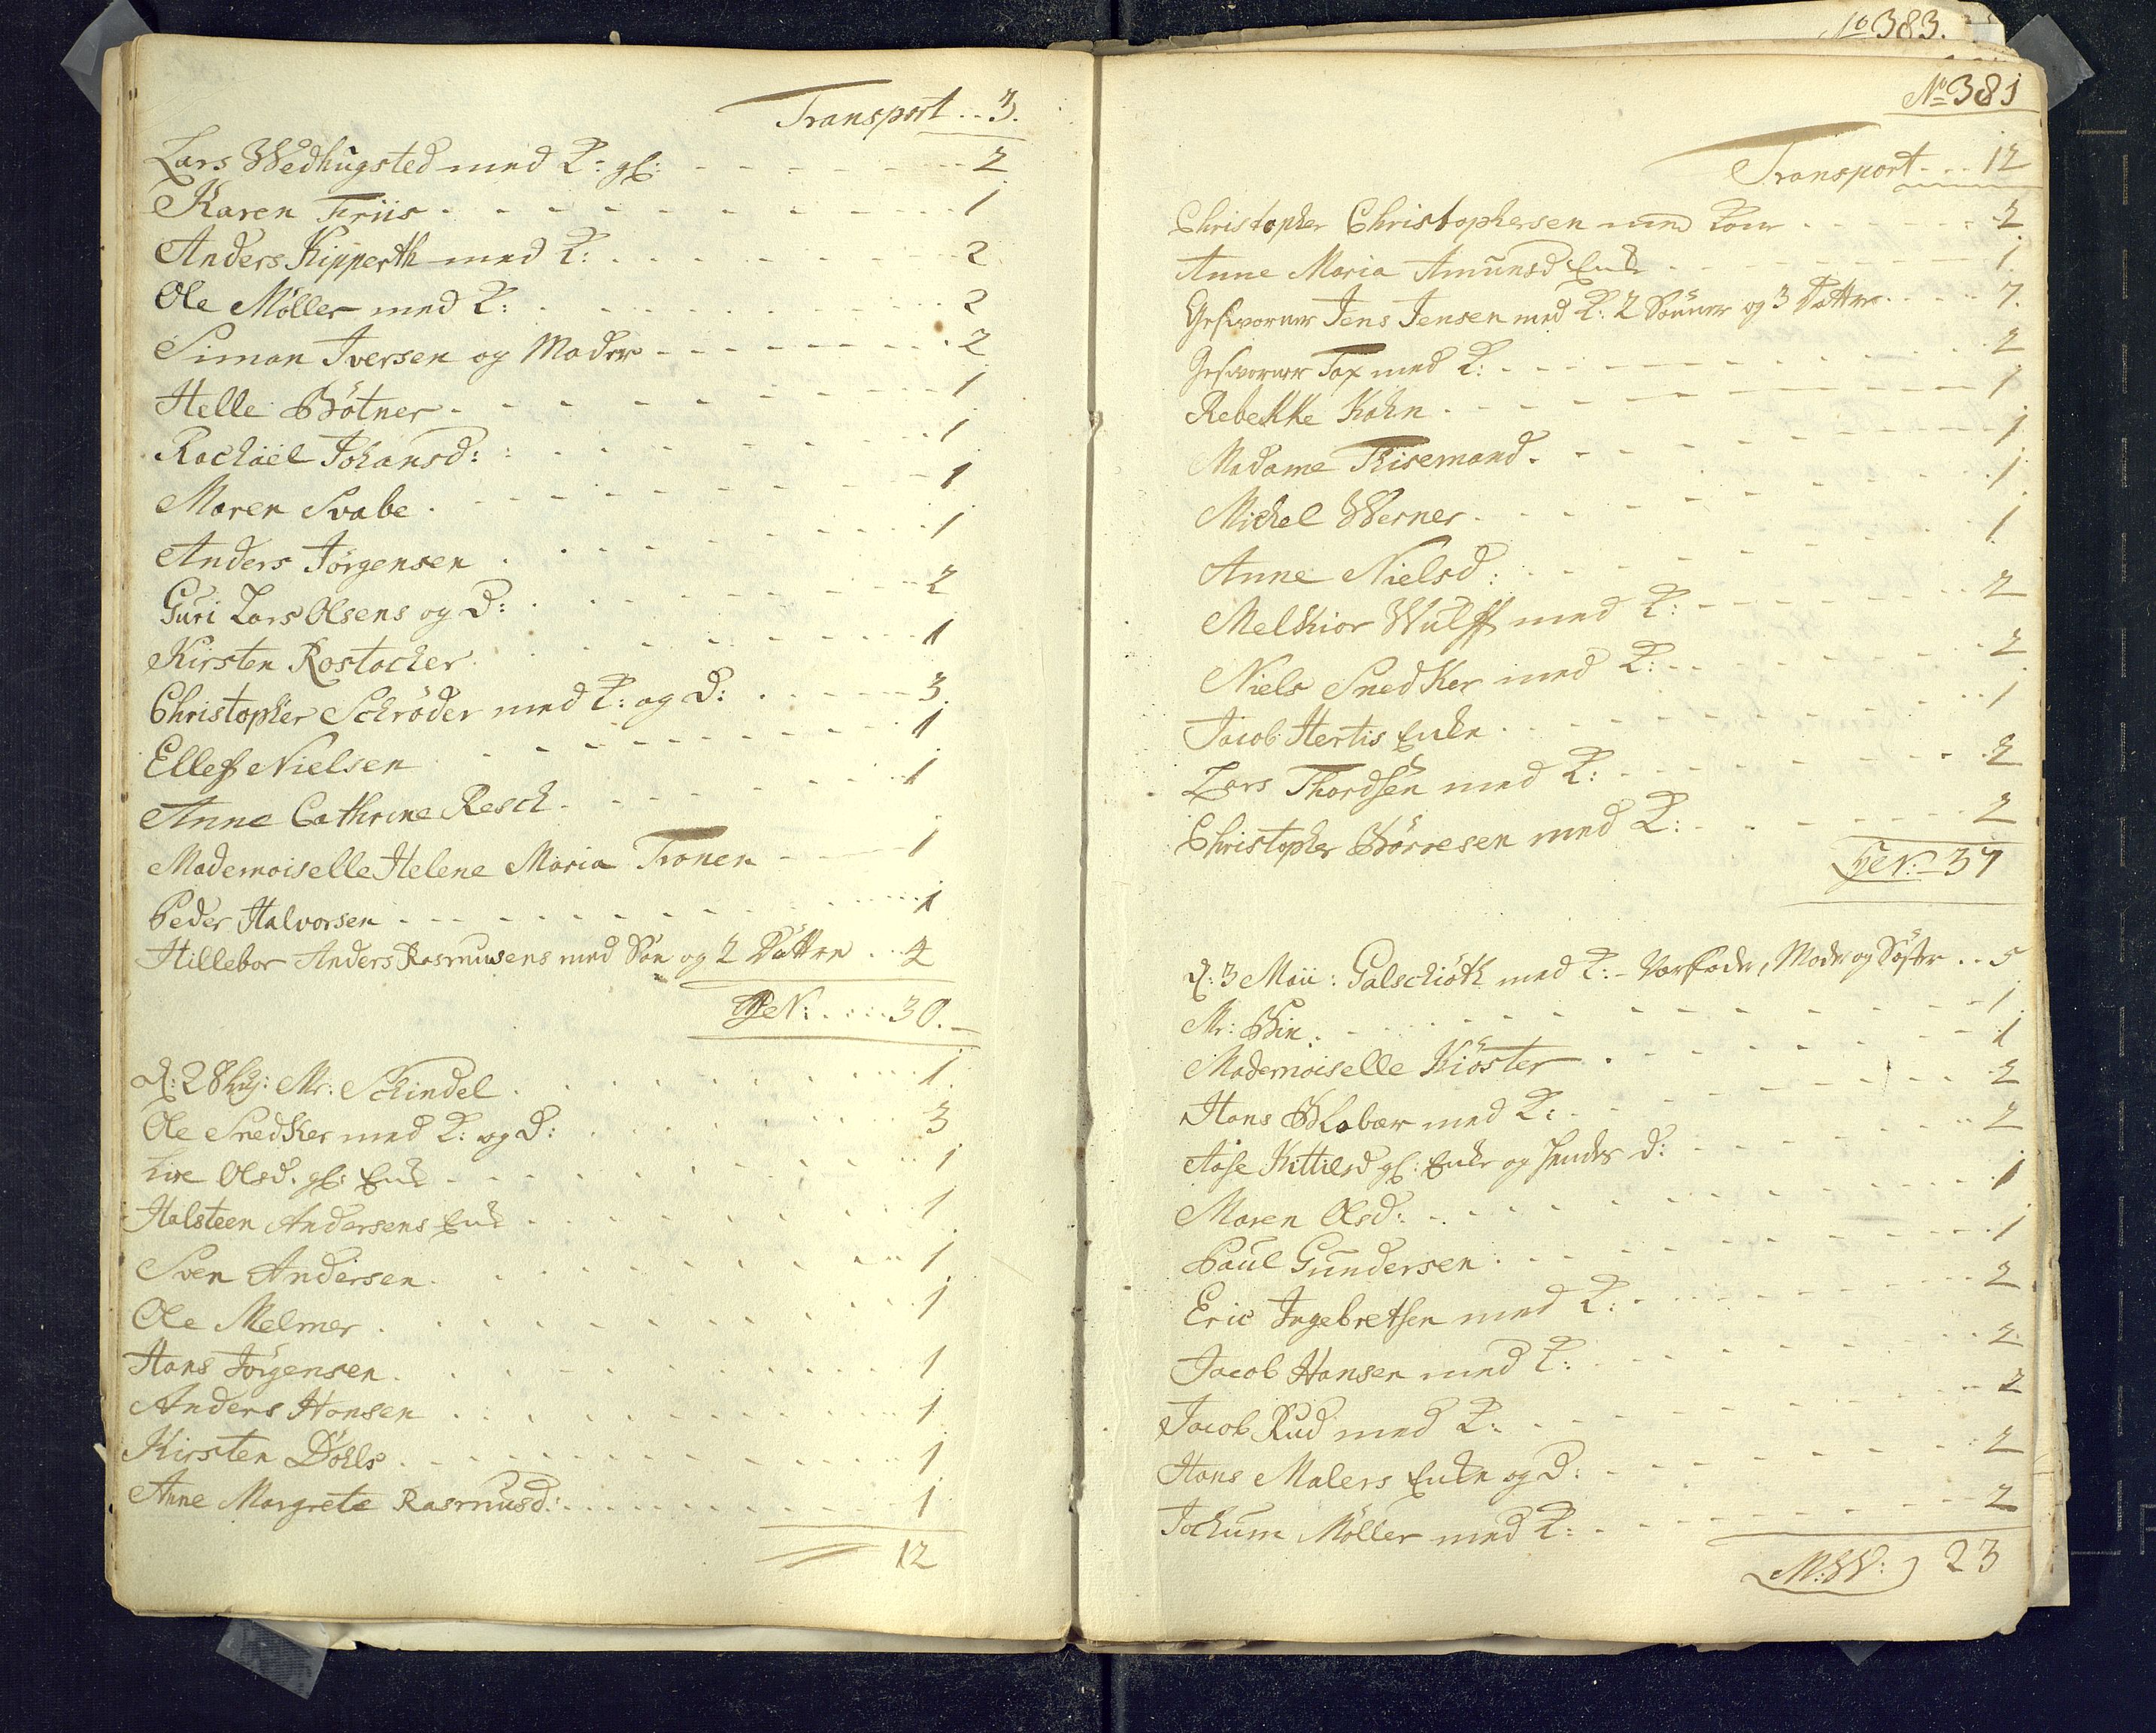 Transport .. 3.
Lars Wedhugsted med K: gl: 2
Karen Friis 1
Anders Kipperth med K: 2
Ole Möller med K: 2
Siman Iversen og Moder 2
Helle Bötner 1
Rachäel Johansd: 1
Maren Svabe 1
Anders Jörgensen 1
Guri Lars Olsens og D: 2
Kirsten Rostocher 1
Christopher Schröder med K: og D: 3
Ellef Nielsen 1
Anne Cathrine Resch 1
Mademoiselle Helene Maria Tronen 1
Peder Halvorsen 1
Hillebor Anders Rasmusens med Sön og 2 Döttre 4
30.
d: 28 huj: Mr: Schindel 1
Ole Snedker med K: og D: 3
Live Olsd. gl: Enke 1
Halsteen Andersens Enke 1
Sven Andersen 1
Ole Melmer 1
Hans Jörgensen 1
Anders Hansen 1
Kirsten Döhls 1
Anne Margrete Rasmusd: 1
12
No 383.
No 381
Transport 12
Christopher Christophersen med Kone 2
Anne Maria Amunsd Enke 1
Gesvorner Jens Jensen med K: 2 Sönner og 3 Döttre 7.
Gesvorner Tax med K: 2
Rebekke Kohn 1
Madame Thisemand 1
Michel Werner 1
Anne Nielsd: 1
Melkior Wulff med K: 2
Niels Snedker med K: 2
Jacob Hertis Enke 1
Lars Thordsen med K: 2
Christopher Börresen med K: 2
37
d: 3 Maii: Galschiöth med K: Vorfader, Moder og Söster 5
Mr: Bin 1
Mademoiselle Kiöster 1
Hans Klabær med K: 2
Aase Kittilsd gl: Enke og hendes D: 2
Maren Olsd: 1
Paul Gundersen 1
Eric Ingebretsen med K: 2
Jacob Hansen med K: 2
Jacob Rud med K: 2
Hans Malers Enke og D: 2
Jochum Möller med K: 2
M:W: 23